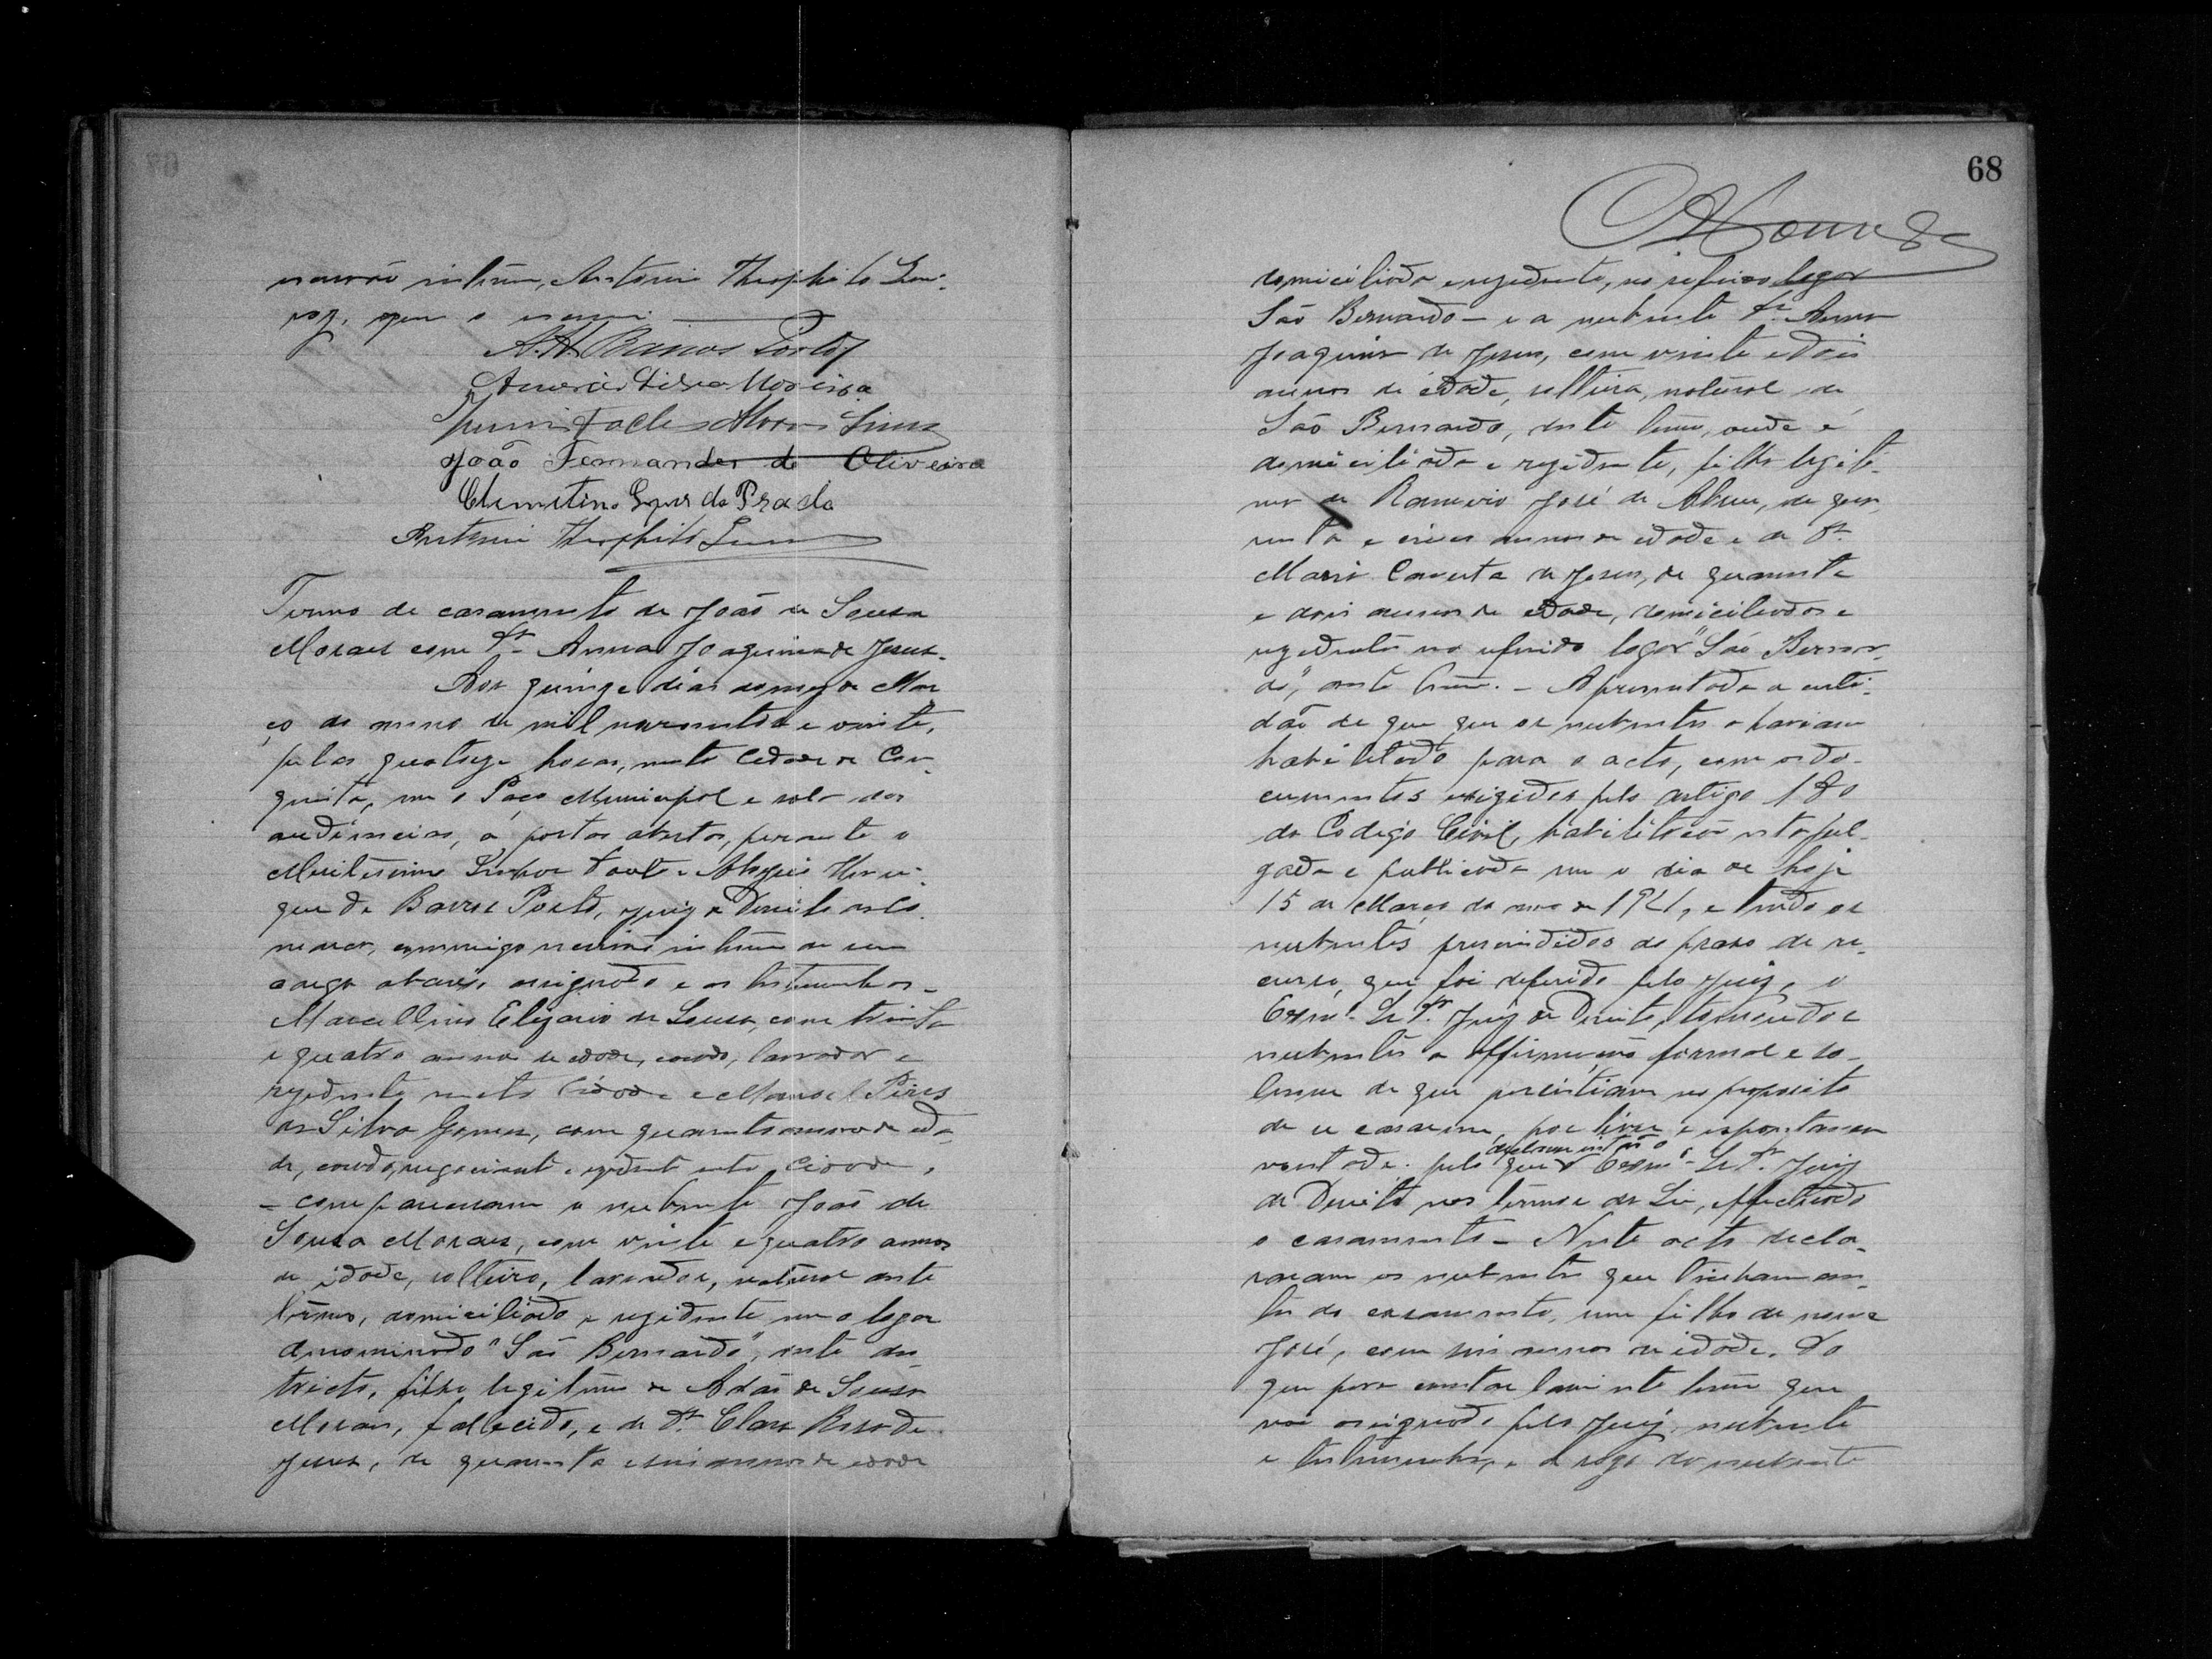 escrivão interino, Antonio Theophilo
que o escrevi.
A. H. Barros Porto
Moreira
Alves Lima
João Fernandes de Oliveira
Clementino Lopes do Prado
Antonio Theophilo
Termo de casamento de João de Sousa
Moraes com Dª Anna Joaquina de Jesus.
Aos quinze dias do mez de Mar
ço do anno de mil novecentos e vinte,
pelas quatorze horas, nesta Cidade de Con
quista, em o Paço Municipal e sala das
audiencias, á portas abertas, perante o
Meritissimo Senhor Doutor Henri
que de Barros Porto, Juiz de Direito da Co
marca, commigo escrivão interino de seu
cargo abaixo assignado e as testemunhas -
Marcellino Elizario de Sousa, com trinta
e quatro annos de edade, casado, lavrador e
rezidente nesta Cidade e Manoel Pires
da Silva Gomes, com quarenta annos de eda
de, casado, negociante e rezidente nesta Cidade,
- compareceram o nubente João de
Sousa Moraes, com vinte e quatro annos
de idade, solteiro, lavrador, natural deste
termo, domiciliado e rezidente em o logar
denominado "São Bernardo", deste dis
tricto, filho legitimo de Adão de Sousa
Moraes, fallecido, e de Dª Clara Rosa de
Jesus, de quarenta e seis annos de edade
68
domiciliada e rezidente, no referido logar
São Bernardo - e a nubente Dª Anna
Joaquina de Jesus, com vinte e dois
annos de edade, solteira, natural de
São Bernardo, deste termo, onde é
domiciliada e rezidente, filha legiti
ma de José de Abreu, de qua
renta e cinco annos de edade e de Dª
Maria de Jesus, de quarenta
e dois annos de edade, domiciliados e
rezidentes no referido logar "São Bernar
do", deste termo. - Apresentada a certi
dão de que que os nubentes o haviam
habilitado para o acto, com os do-
cumentos exigidos pelo artigo 180
do Codigo Civil, habilitação esta jul-
gada e publicada em o dia de hoje
15 de Março do anno de e tendo os
nubentes prescindidos do praso de re-
curso, que foi deferido pelo Juiz, o
Exmº Sr Dr. Juiz de Direito, tomando
nubentes a affirmação formal e so-
lemne de que persistiam no proposito
de se casarem, por livre e espontanea
vontade. pelo que o Exmº Sr Dr. Juiz
de Direito nos termos da Lei, effectuado
o casamento - Neste acto decla-
raram os nubentes que tinham an
tes do casamento, um filho de nome
José, com seis annos de idade. Do
que para constar lavrei este termo que
vai assignado pelo Juiz, nubente
e testemunhas, e a rogo da nubente